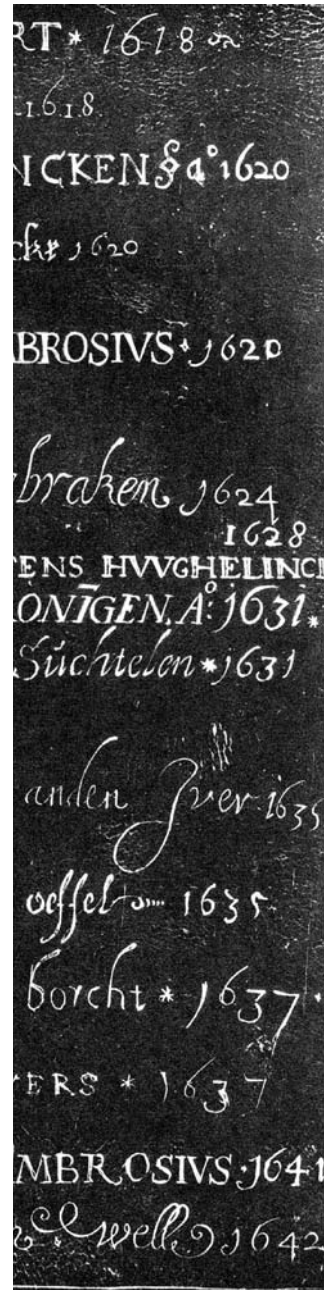 RT * 1618
1618
NCKEN § a° 1620
cke 1620
BROSIVS · 1620
braken 1624
1628
TENS HVVGHELINCK
ONĪGEN, A° 1631 *
Sŭchtelen * 1631
anden Zver 1635
oeffel 1635
borcht * 1637 ·
ERS * 1637
MBROSIVS · 1641
well 1642